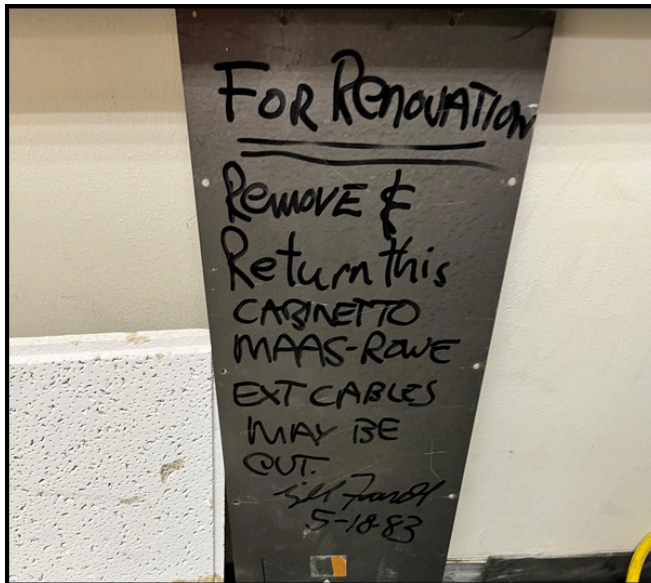 FOR RENOVATION
Remove &
Return this
CABINET TO
MAAS-ROWE
EXT CABLES
MAY BE
CUT.
5-18-83